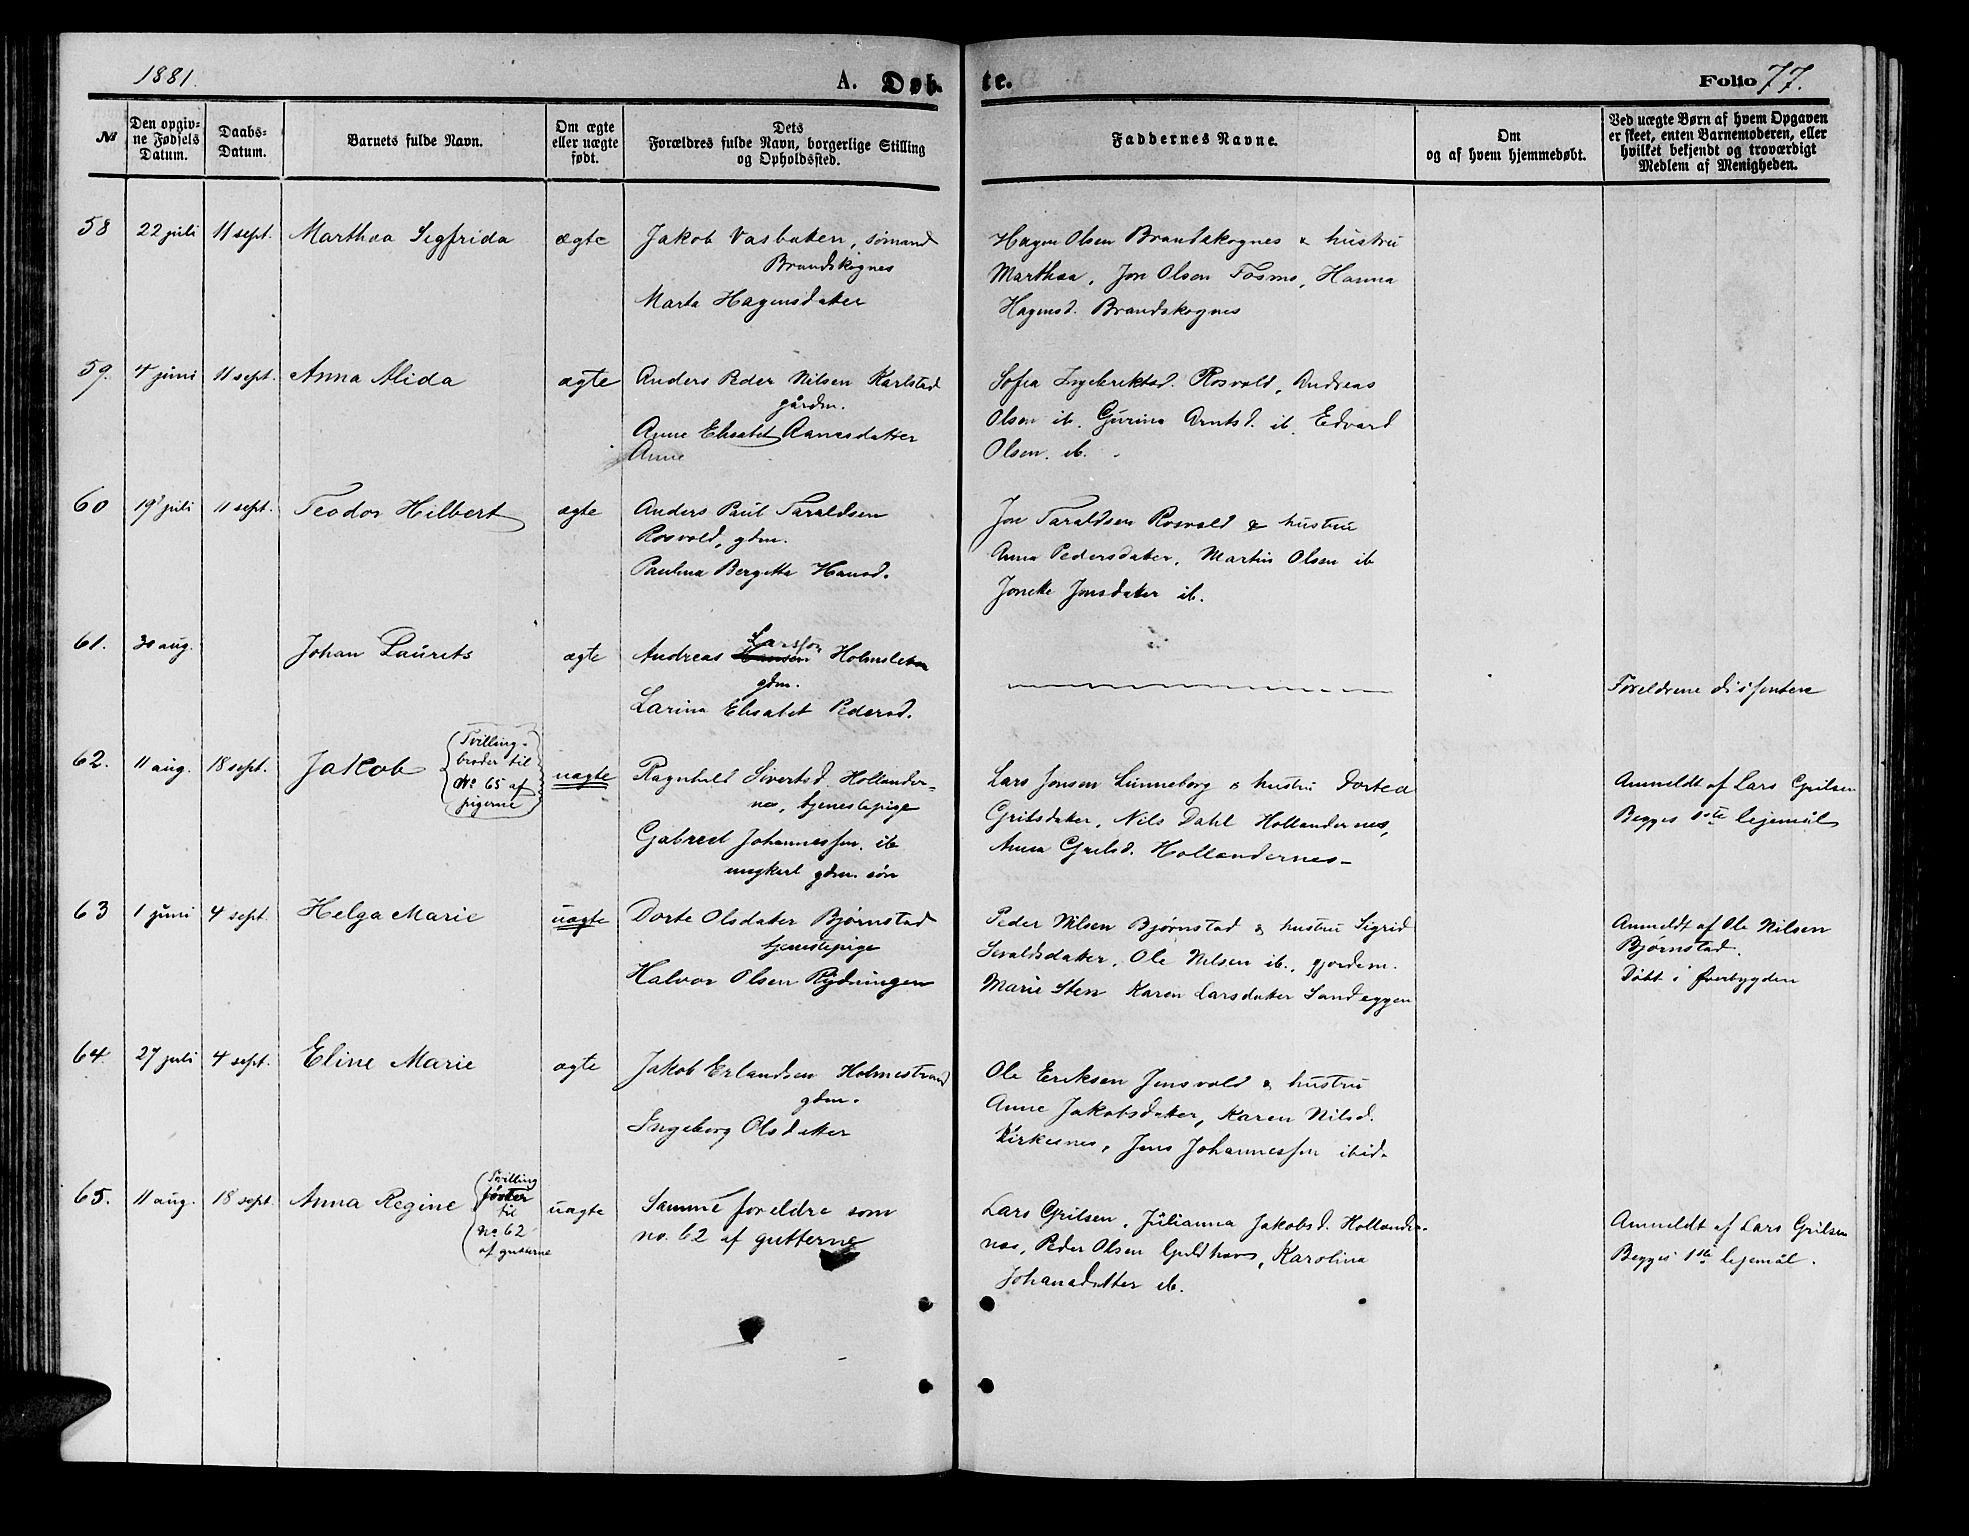 1881.
A. Døb-
te.
Folio 77.
№
Den opgiv-
ne Fødsels
Datum.
Daabs-
Datum.
Barnets fulde Navn.
Om ægte
eller uægte
født.
Dets
Forældres fulde Navn, borgerlige Stilling
og Opholdssted.
Faddernes Navne.
Om
og af hvem hjemmedøbt.
Ved uægte Børn af hvem Opgaven
er skeet, enten Barnemoderen, eller
hvilket bekjendt og troværdigt
Medlem af Menigheden.
58
22 juli
11 sept.
Marthaa Sigfrida
ægte
Jakob Vasbaken, sømand
Brandskognes
Marta Hagensdatter
Hagen Olsen Brandskognes & hustru
Marthaa, Jon Olsen Fosmo, Hanna
Hagensd. Brandskognes
59.
4 juni
11 sept.
Anna Alida
ægte
Anders Peder Nilsen Karlstad
gårdm.
Anne Elisabet Aanesdatter
Anne
Sofia Ingebriktsd. Rosvold, Andreas
Olsen ib. Gurina Arntsd. ib. Edvard
Olsen. ib.
60
19 juli
11 sept.
Teodor Hilbert
ægte
Anders Paul Taraldsen
Rosvold, gdm.
Paulina Bergitta Hansd.
Jon Taraldsen Rosvold & hustru
Anna Pedersdatter, Martin Olsen ib
Jonette Jonsdatter ib.
61.
30 aug.
Johan Laurits
ægte
Larssøn
Andreas Hansen Holmsleten
gdm.
Larina Elisabet Pedersd.
Foreldrene dissentere
62.
11 aug.
18 sept.
Jakob
Tvilling-
broder til
No 65 af
pigerne
uægte
Ragnhild Sivertsd. Hollander-
nes, tjenestepige
Gabriel Johannessen ib
ungkarl gdm. søn
Lars Jonsen Lunneborg & hustru Dortea
Grilsdatter, Nils Dahl Hollandernes,
Anna Grilsd. Hollandernes-
Anmeldt af Lars Grilsen
Begges 1ste lejemål
63
1 juni
4 sept.
Helga Marie
uægte
Dorte Olsdatter Bjørnstad
tjenestepige
Halvor Olsen Rydningen
Peder Nilsen Bjørnstad & hustru Sigrid
Sivaldsdatter, Ole Nilsen ib., gjordem.
Marie Sten Karen Larsdatter Sandeggen
Anmeldt af Ole Nilsen
Bjørnstad.
Døbt i Øverbygden
64.
27 juli
4 sept.
Eline Marie
ægte
Jakob Erlandsen Holmestrand
gdm.
Ingeborg Olsdatter
Ole Eriksen Jensvold & hustru
Anne Jakobsdatter, Karen Nilsd.
Kirkesnes, Jens Johannessen ibid.
65.
11 aug.
18 sept.
Anna Regine
Tvilling
søster
til
No 62
af gutterne
uægte
Samme foreldre som
no. 62 af gutterne
Lars Grilsen, Julianna Jakobsd. Hollander-
nes, Peder Olsen Guldhav, Karolina
Johansdatter ib.
Anmeldt af Lars Grilsen
Begges 1ste lejemål.